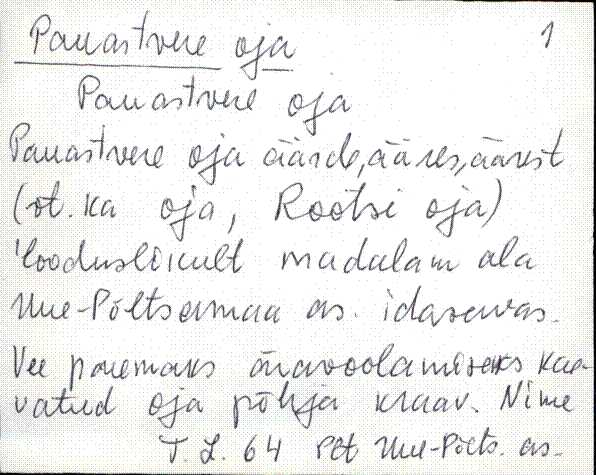 Pauastvere oja 1
Pauastvere oja
Pauastvere oja äärde, ääres, äärest
(vt. ka oja, Rootsi oja)
looduslikult madalam ala
Uue-Põltsamaa as. idaservas.
Vee paremaks äravoolamiseks kae-
vatud oja põhja kraav. Nime
T. L. 64 Plt Uue-Põlts. as.